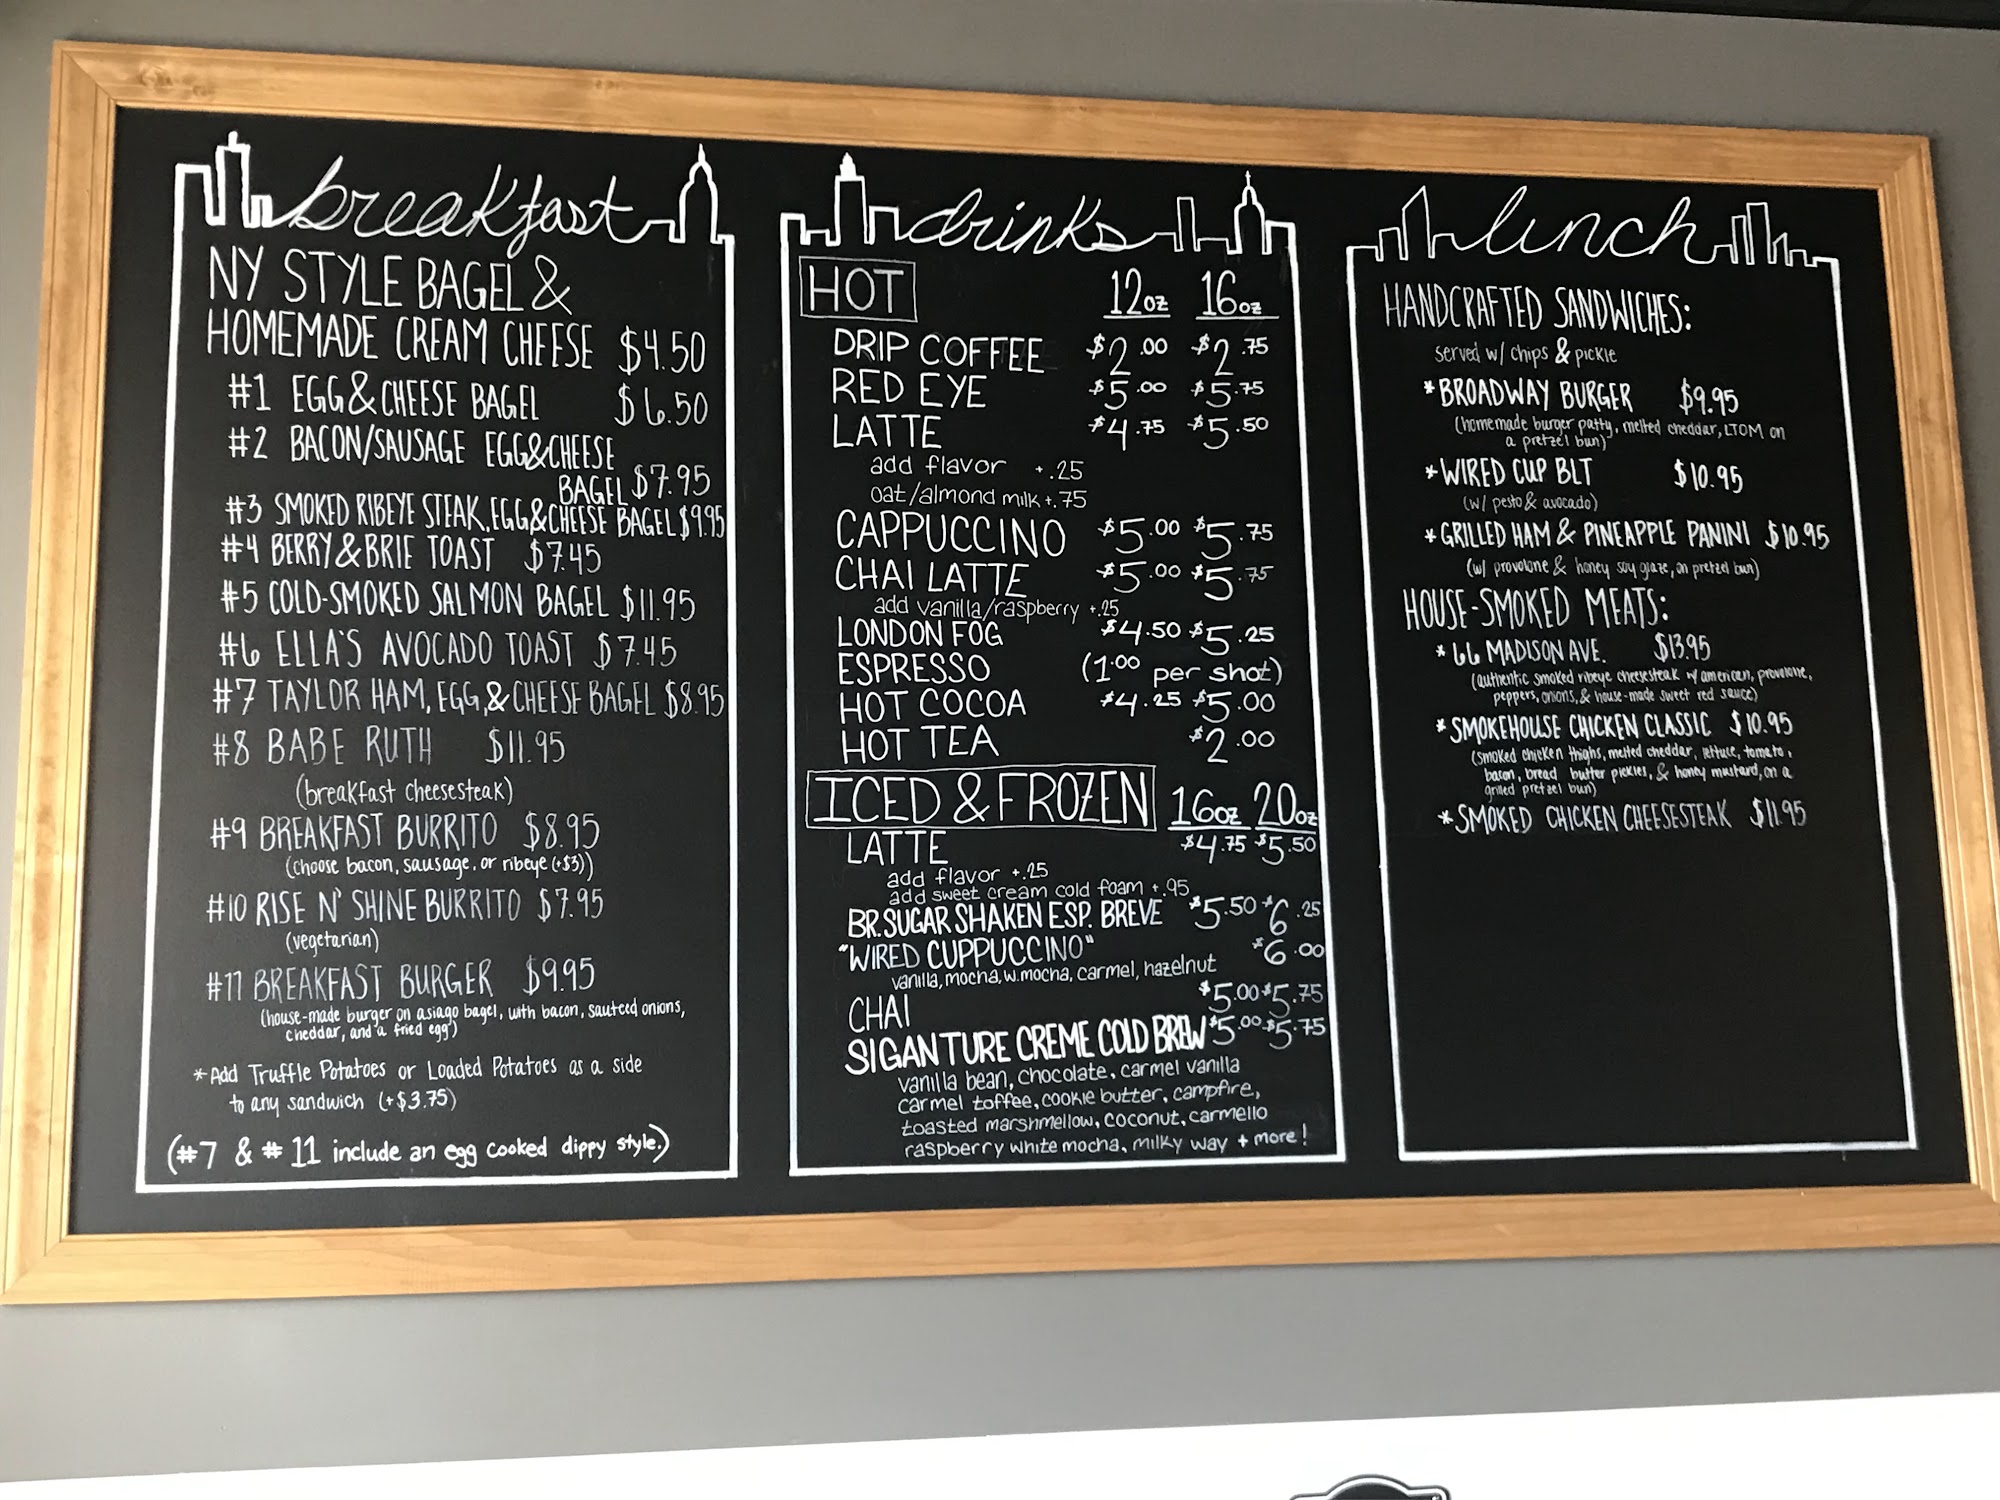 breakfast
NY STYLE BAGEL &
HOMEMADE CREAM CHEESE $4.50
#1 EGG & CHEESE BAGEL $6.50
#2 BACON/SAUSAGE EGG & CHEESE
BAGEL $7.95
#3 SMOKED RIBEYE STEAK, EGG & CHEESE BAGEL $9.95
#4 BERRY & BRIE TOAST $7.45
#5 COLD-SMOKED SALMON BAGEL $11.95
#6 ELLA'S AVOCADO TOAST $7.45
#7 TAYLOR HAM, EGG, & CHEESE BAGEL $8.95
#8 BABE RUTH $11.95
(breakfast cheesesteak)
#9 BREAKFAST BURRITO $8.95
(choose bacon, sausage, or ribeye (+$3))
#10 RISE N' SHINE BURRITO $7.95
(vegetarian)
#11 BREAKFAST BURGER $9.95
(house-made burger on asiago bagel, with bacon, sauteed onions,
cheddar, and a fried egg)
*Add Truffle Potatoes or Loaded Potatoes as a side
to any sandwich (+$3.75)
(#7 & #11 include an egg cooked dippy style.)
drinks
HOT 12oz 16oz
DRIP COFFEE $2.00 $2.75
RED EYE $5.00 $5.75
LATTE $4.75 $5.50
add flavor +.25
oat/almond milk +.75
CAPPUCCINO $5.00 $5.75
CHAI LATTE $5.00 $5.75
add vanilla/raspberry +.25
LONDON FOG $4.50 $5.25
ESPRESSO (1.00 per shot)
HOT COCOA $4.25 $5.00
HOT TEA $2.00
ICED & FROZEN 16oz 20oz
LATTE $4.75 $5.50
add flavor +.25
add sweet cream cold foam +.95
BR. SUGAR SHAKEN ESP. BREVE $5.50 $6.25
"WIRED CUPPUCCINO" $6.00
vanilla, mocha, w. mocha, carmel, hazelnut
CHAI $5.00 $5.75
SIGANTURE CREME COLD BREW $5.00 $5.75
vanilla bean, chocolate, carmel vanilla
carmel toffee, cookie butter, campfire,
toasted marshmellow, coconut, carmello
raspberry white mocha, milky way + more!
lunch
HANDCRAFTED SANDWICHES:
served w/ chips & pickle
*BROADWAY BURGER $9.95
(homemade burger patty, melted cheddar, LTOM on
a pretzel bun)
*WIRED CUP BLT $10.95
(w/ pesto & avocado)
*GRILLED HAM & PINEAPPLE PANINI $10.95
(w/ provolone & honey soy glaze, on pretzel bun)
HOUSE-SMOKED MEATS:
*66 MADISON AVE. $13.95
(authentic smoked ribeye cheesesteak w/ american, provolone,
peppers, onions, & house-made sweet red sauce)
*SMOKEHOUSE CHICKEN CLASSIC $10.95
(smoked chicken thighs, melted cheddar, lettuce, tomato,
bacon, bread butter pickles, & honey mustard, on a
grilled pretzel bun)
*SMOKED CHICKEN CHEESESTEAK $11.95